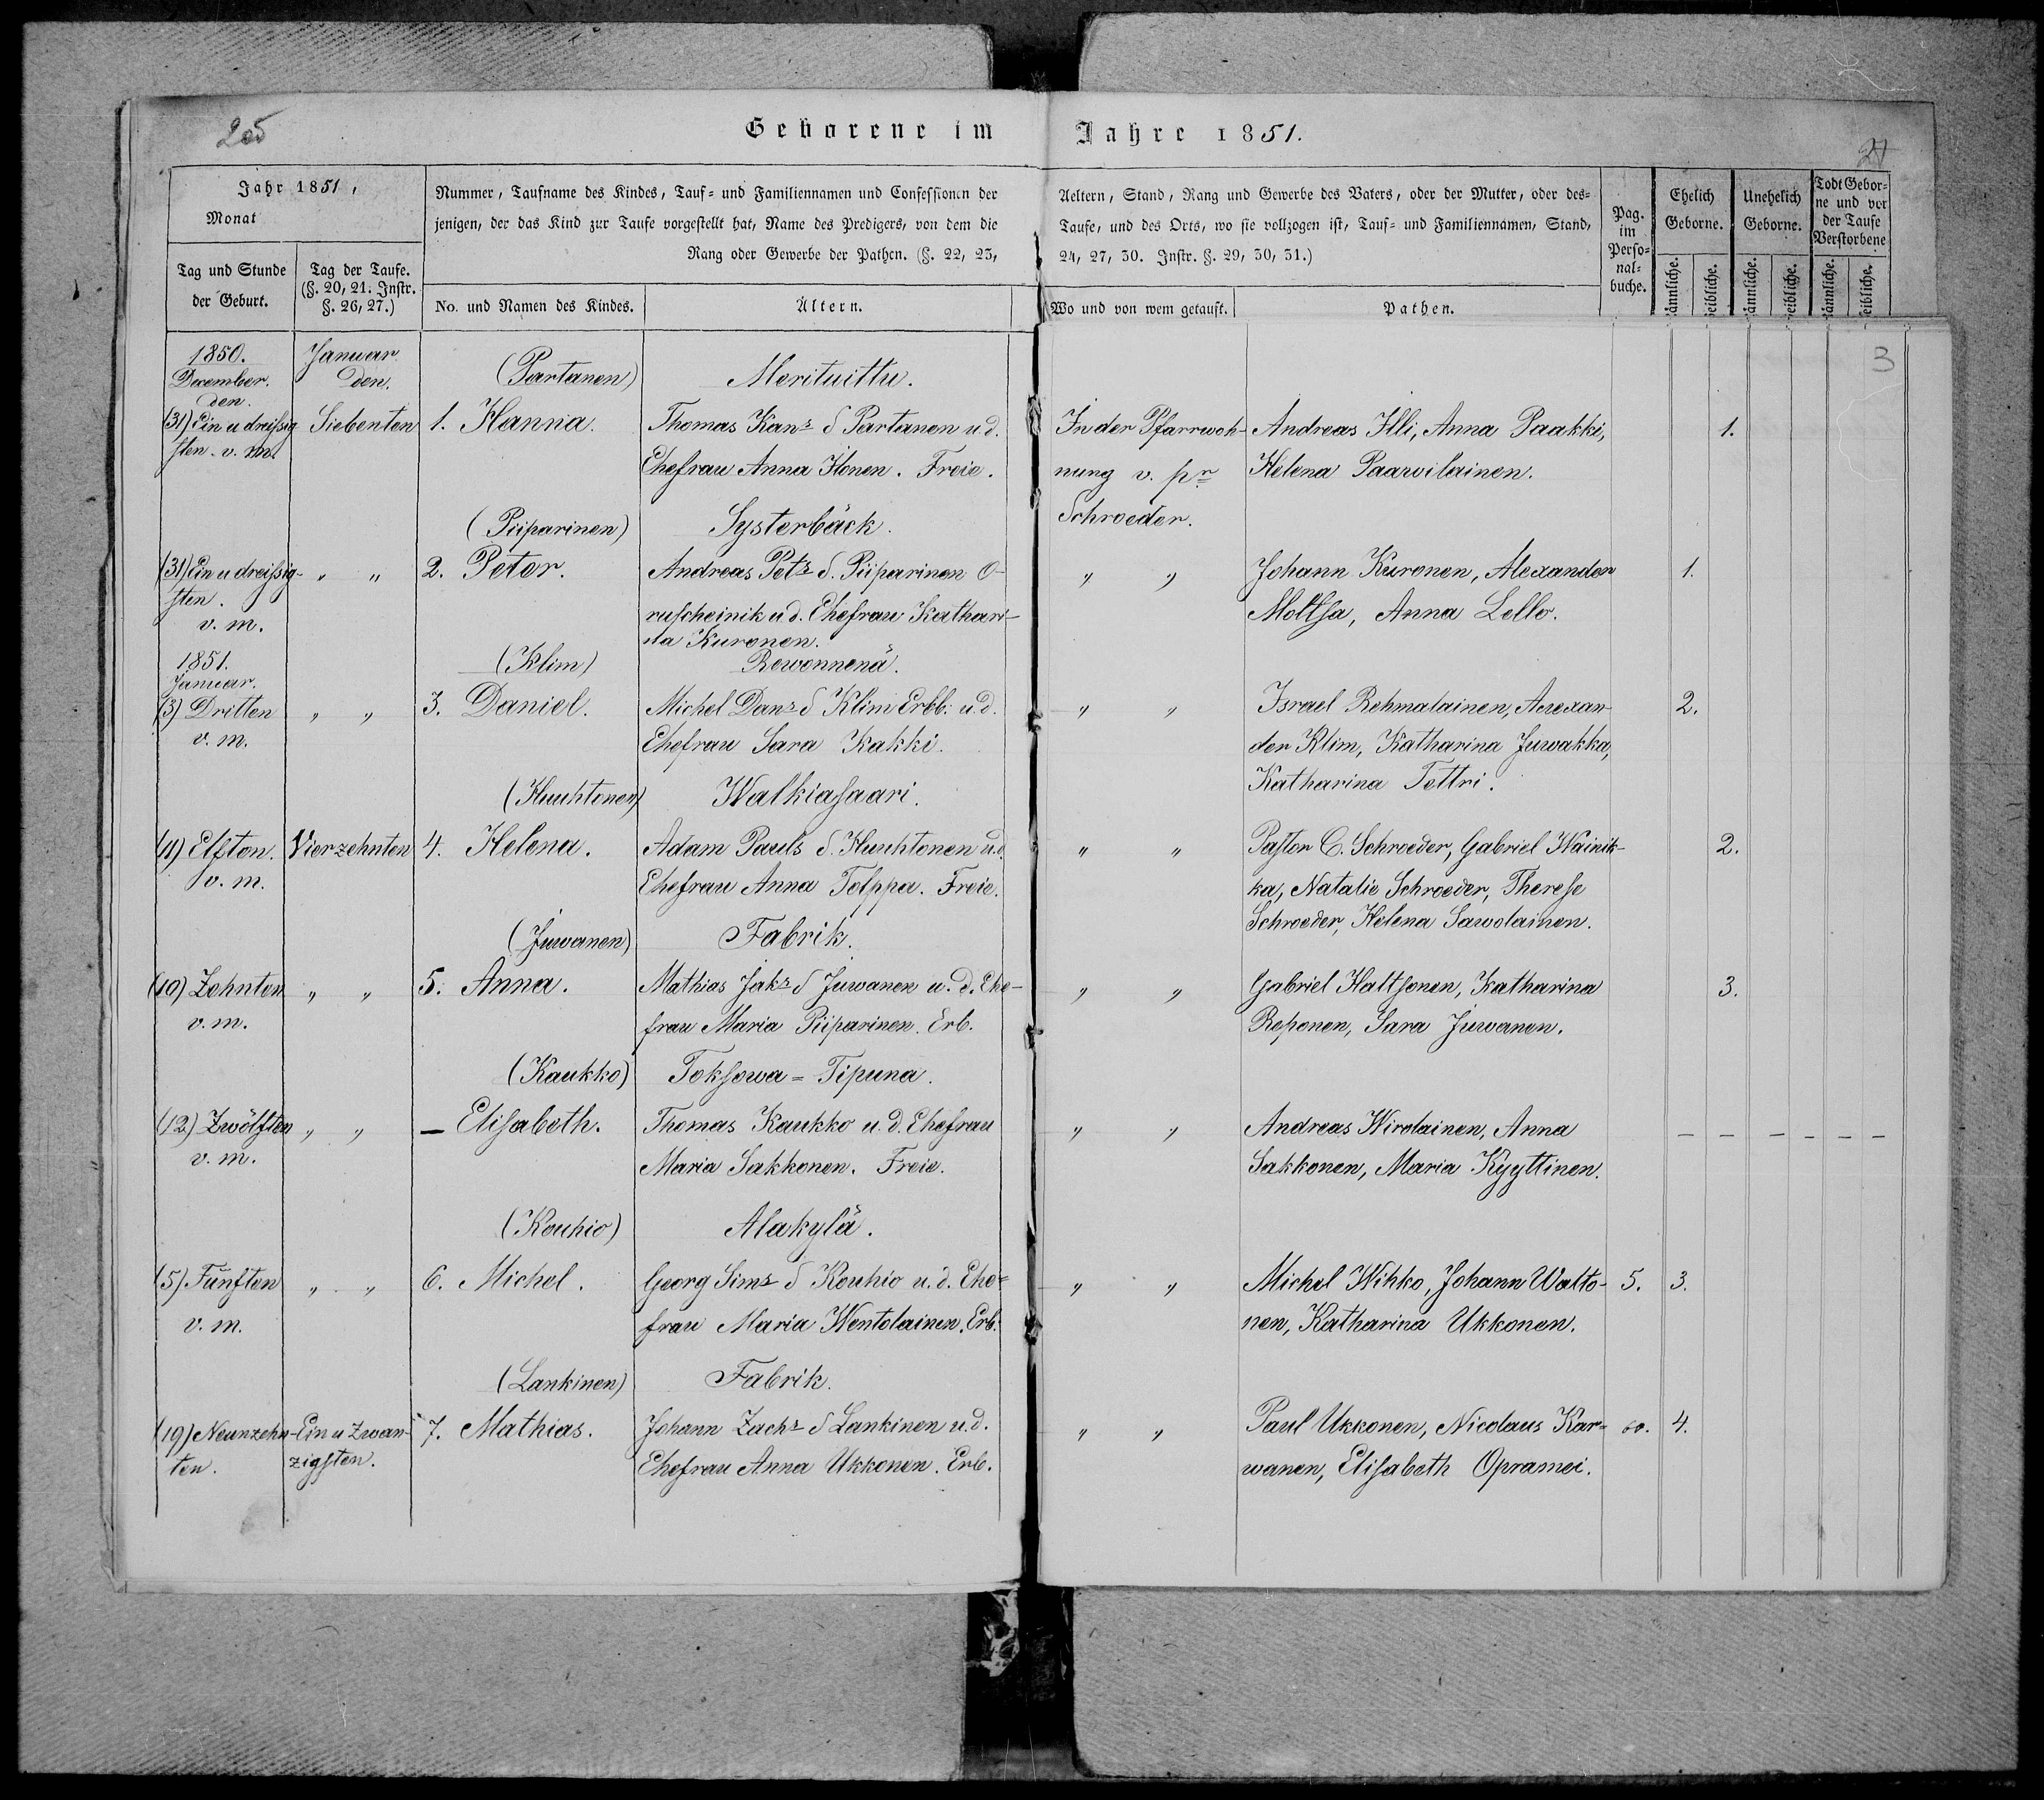 205
Geborene im Jahre 1851.
21
3
Jahr 1851,
Monat
Tag und Stunde
der Geburt.
Tag der Taufe.
(§. 20, 21. Instr.
§. 26, 27.)
Nummer, Taufname des Kindes, Tauf- und Familiennamen und Confessionen der
jenigen, der das Kind zur Taufe vorgestellt hat, Name des Predigers, von dem die
Rang oder Gewerbe der Pathen. (§. 22, 23,
No. und Namen des Kindes.
Ältern.
Aeltern, Stand, Rang und Gewerbe des Vaters, oder der Mutter, oder des-
Taufe, und des Orts, wo sie vollzogen ist, Tauf- und Familiennamen, Stand,
24, 27, 30. Instr. §. 29, 30, 31.)
Wo und von wem getauft.
Pathen.
Pag.
im
Perso-
nal-
buche.
Ehelich
Geborne.
Unehelich
Geborne.
Todt Gebor-
ne und vor
der Taufe
Verstorbene
männliche.
weibliche.
männliche.
weibliche.
männliche.
weibliche.
1850.
December.
den.
Januar
den.
(Partanen)
Merituittu.
(31) Ein u dreißig
sten. v. m.
Siebenten
1. Hanna.
Thomas Kans S Partanen u. d.
Ehefrau Anna Ilonen. Freie.
In der Pfarrwoh-
nung v. pr
Schroeder.
Andreas Illi, Anna Paakki,
Helena Paawilainen.
1.
(Piiparinen)
Systerbäck.
(31) Ein u dreißig-
sten.
v. m.
" "
2. Peter.
Andreas Pets S. Piiparinen O-
ruscheinik u d. Ehefrau Kathari-
na Kuronen.
" "
Johann Kuronen, Alexander
Moltsa, Anna Lello.
1.
1851.
Januar.
(Klim)
Rewonnenä.
(3) Dritten
v. m.
" "
3. Daniel.
Michel Dans S Klim Erbb. u. d.
Ehefrau Sara Kakki.
" "
Israel Rehmalainen, Alexan-
der Klim, Katharina Juwakka,
Katharina Tettri.
2.
(Huuhtonen)
Walkiasaari.
(11) Elften.
v. m.
Vierzehnten
4. Helena.
Adam Pauls S. Huuhtonen u. d.
Ehefrau Anna Tolppa. Freie.
" "
Pastor C. Schroeder, Gabriel Wainik-
ka, Natalie Schroeder, Therese
Schroeder, Helena Sawolainen.
2.
(Juwanen)
Fabrik.
(10) Zehnten
v. m.
" "
5. Anna.
Mathias Jaks S Juwanen u. d. Ehe-
frau Maria Piiparinen. Erb.
" "
Gabriel Haltsonen, Katharina
Reponen, Sara Juwanen.
3.
(Kaukko)
Toksowa = Tipuna.
(12) Zwölften
v. m.
" "
— Elisabeth.
Thomas Kaukko u. d. Ehefrau
Maria Sakkonen. Freie.
" "
Andreas Wirolainen, Anna
Sakkonen, Maria Kyyttinen.
— — — — — —
(Kouhio)
Alakylä.
(5) Fünften
v. m.
" "
6. Michel.
Georg Sims S Kouhio u. d. Ehe-
frau Maria Wentolainen. Erb.
" "
Michel Wihko, Johann Watto-
nen, Katharina Ukkonen.
5. 3.
(Lankinen)
Fabrik.
(19) Neunzehn-
ten.
Ein u Zwan-
zigsten.
7. Mathias.
Johann Zachs S Lankinen u. d.
Ehefrau Anna Ukkonen. Erb.
" "
Paul Ukkonen, Nicolaus Kar-
wanen, Elisabeth Opramei.
4.